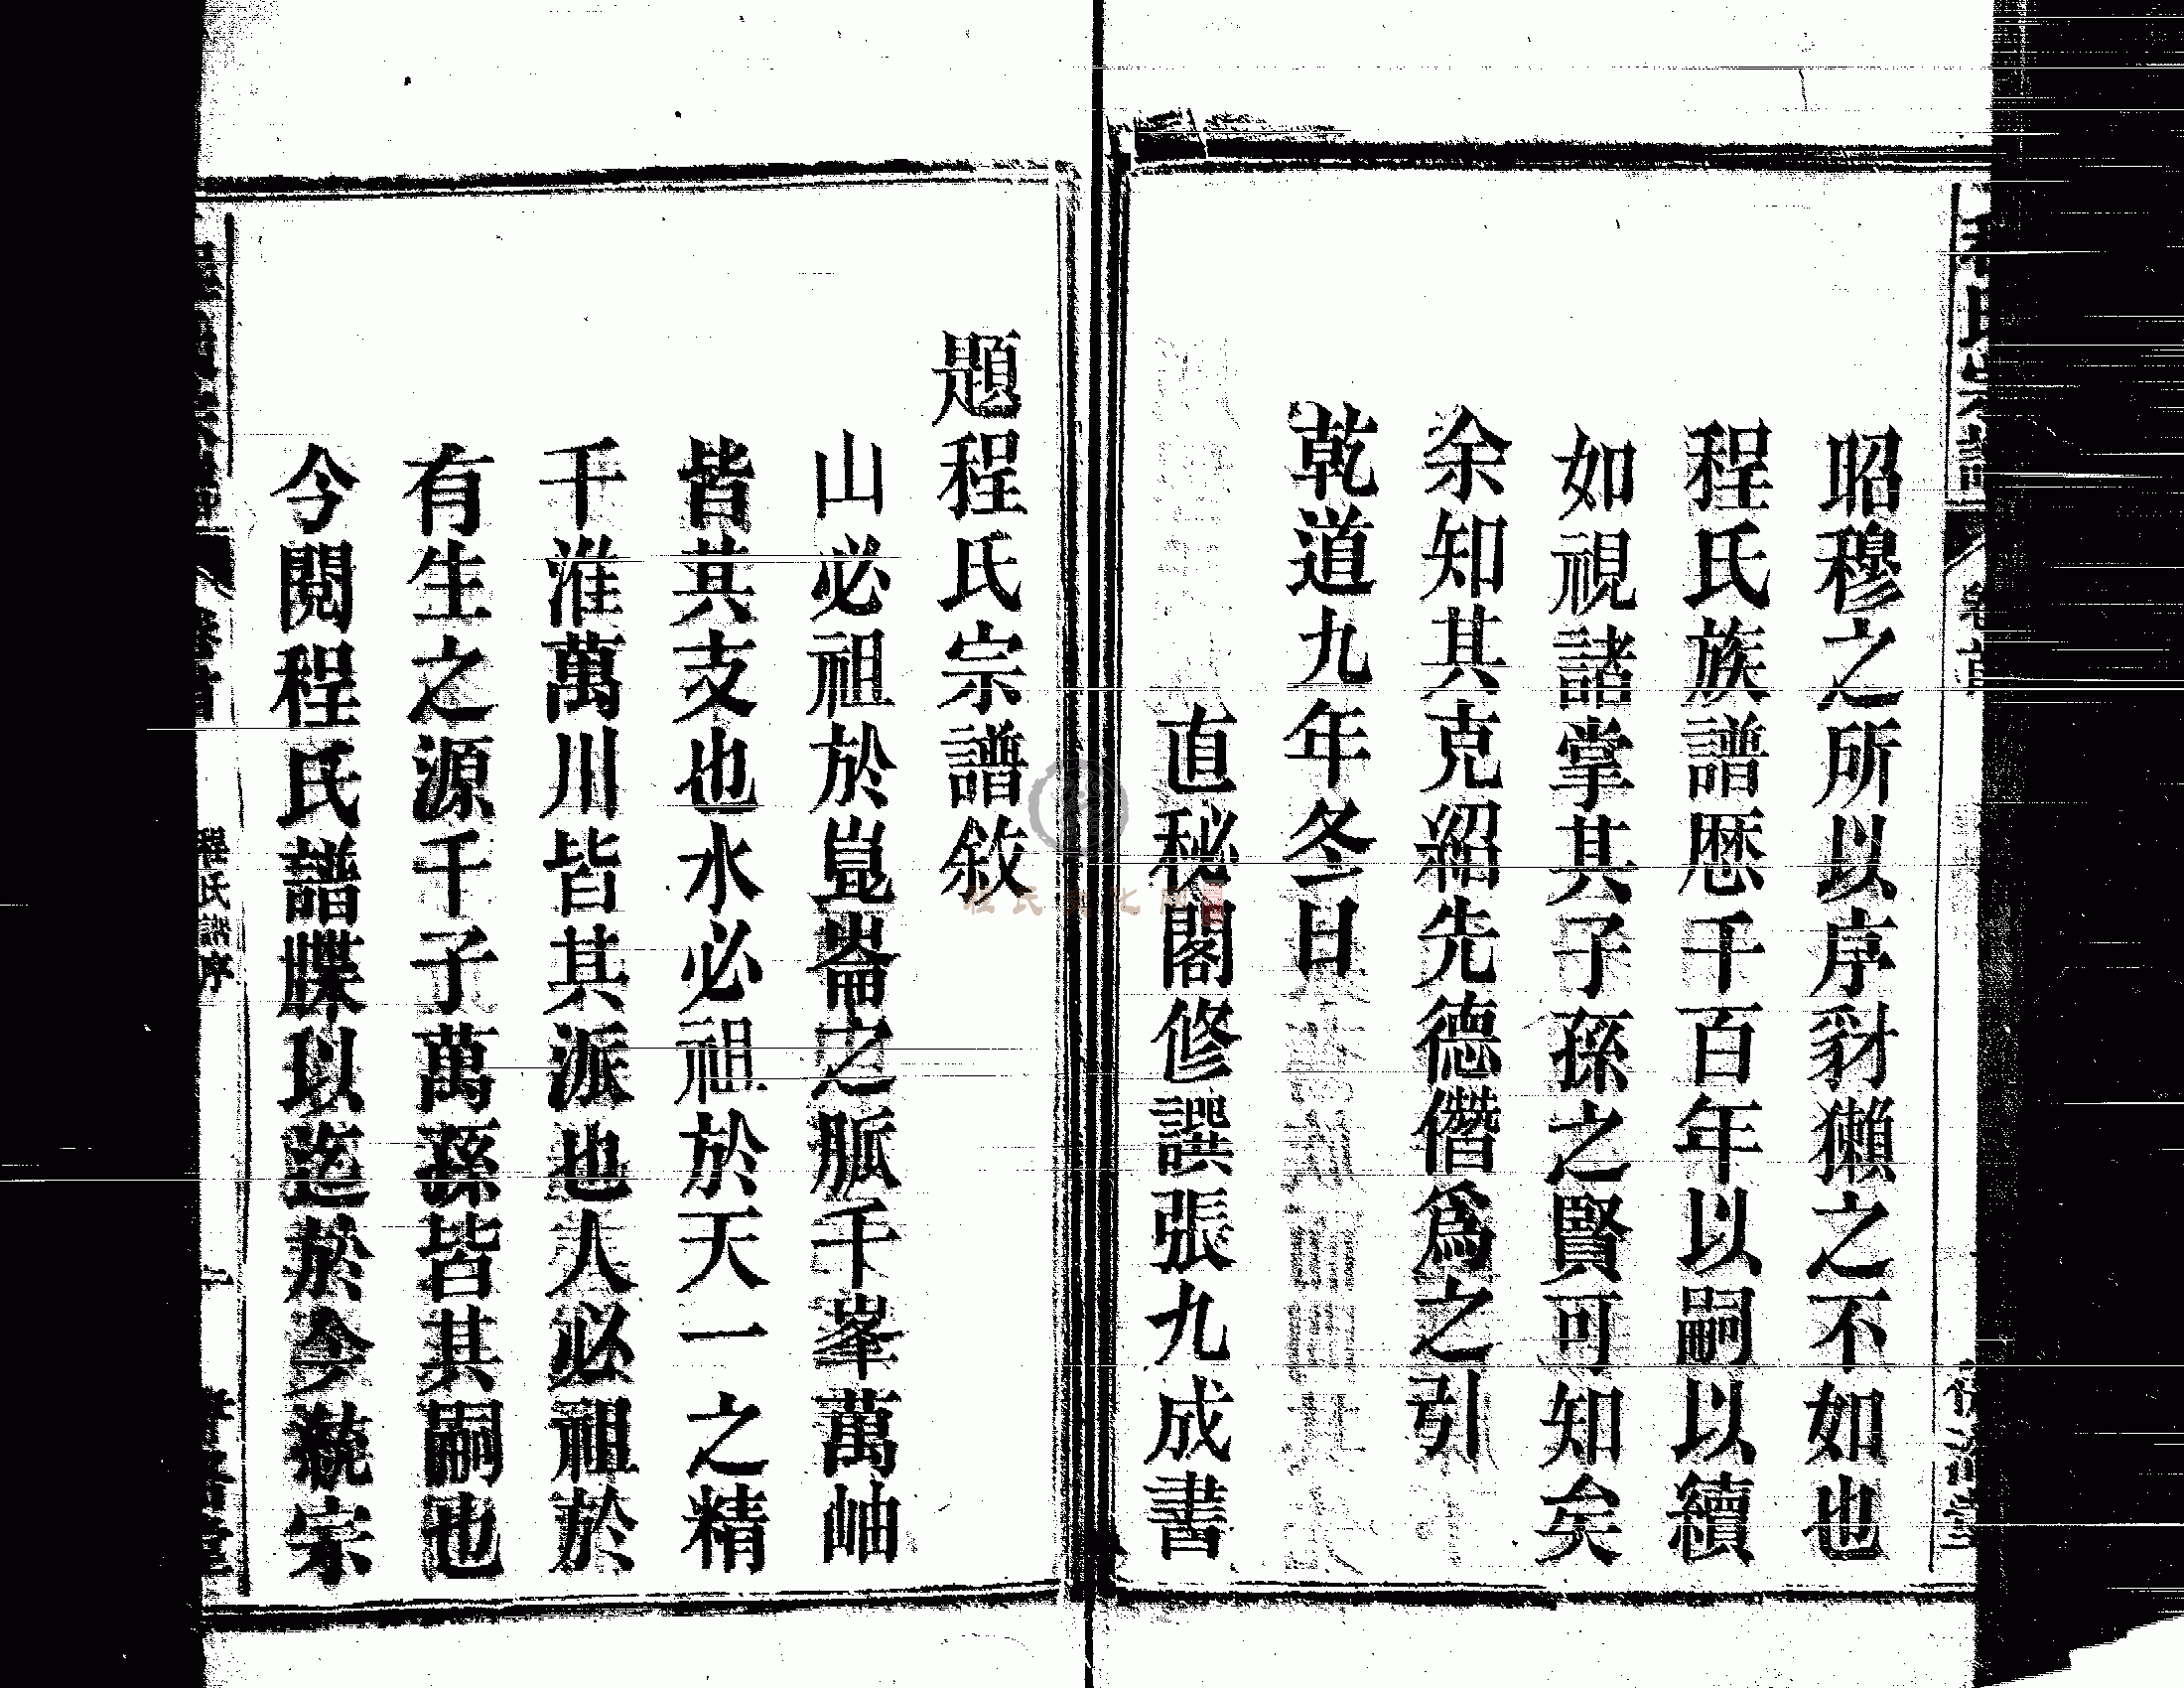 昭穆之所以序豺獺之不如也
程氏族譜歷千百年以嗣以續
如視諸掌其子孫之賢可知矣
余知其克紹先德僭爲之引
乾道九年冬日
直秘閣修譔張九成書
題程氏宗譜敘
山必祖於崑崙之脈千峯萬岫
皆其支也水必祖於天一之精
千淮萬川皆其派也人必祖於
有生之源千子萬孫皆其嗣也
今閱程氏譜牒以迄於今統宗
程氏譜序